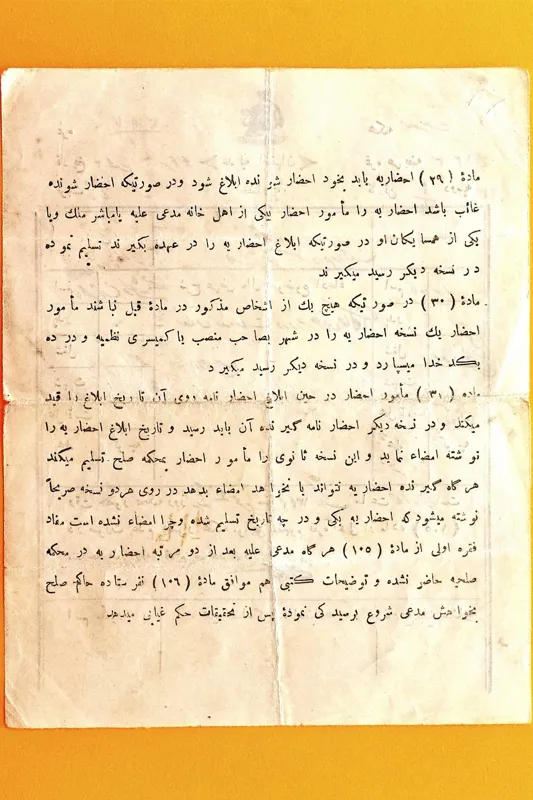 مادۀ ( ۲۹ ) احضاریه باید بخود احضار شو نده ابلاغ شود ودر صورتیکه احضار شونده
غائب باشد احضار یه را مأ مور احضار بیکی از اهل خانه مدعی علیه یامباشر ملك ویا
یکی از همسا یکان او در صورتیکه ابلاغ احضار یه را در عهده بکیر ند تسلیم نمو ده
در نسخه دیکر رسید میکیر ند
مادۀ ( ۳۰ ) در صور تیکه هیچ یك از اشخاص مذکور در مادۀ قبل نبا شند مأ مور
احضار یك نسخه احضار یه را در شهر بصا حب منصب یا کمیسر ی نظمیه و در ده
بکد خدا میسپا رد و در نسخه دیکر رسید میکیر د
ماده ( ۳۱ ) مأمور احضار در حین ابلاغ احضار نامه روی آن تا ریخ ابلاغ را قید
میکند و در نسخه دیکر احضار نامه کیر نده آن باید رسید و تاریخ ابلاغ احضار یه را
نو شته امضاء نما ید و این نسخه ثا نوی را مأ مو ر احضار بمحکمه صلح تسلیم میکند
هر کاه کیر نده احضار یه نتواند یا نخوا هد امضاء بدهد در روی هردو نسخه صریحاً
نو شته میشود که احضار یه بکی و در چه تاریخ تسلیم شده وچرا امضاء نشده است مفاد
فقره اولی از مادۀ ( ۱۰۵ ) هر گاه مدعی علیه بعد از دو مر تبه احضار یه در محکه
صلحیه حاضر نشده و توضیحات کتبی هم موافق مادۀ ( ۱۰۶ ) نفر ستا ده حاکم صلح
بخوا هش مدعی شروع برسید کی نمودۀ پس از تحقیقات حکم غیابی میدهد